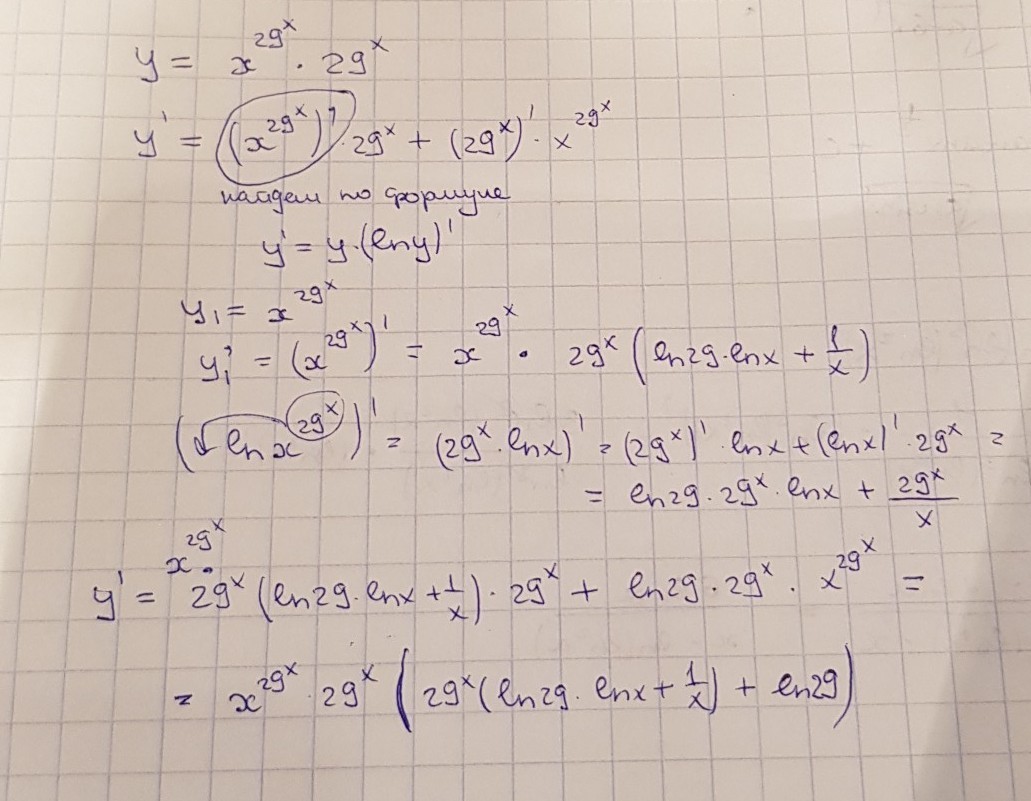 y = x^{29^x} · 29^x
y' = (x^{29^x})' · 29^x + (29^x)' · x^{29^x}
найдем по формуле
y' = y·(ln y)'
y₁ = x^{29^x}
y₁' = (x^{29^x})' = x^{29^x} · 29^x (ln29·lnx + 1/x)
(ln x^{29^x})' = (29^x · lnx)' = (29^x)' · lnx + (lnx)' · 29^x =
= ln29 · 29^x · lnx + 29^x/x
y' = x^{29^x} · 29^x (ln29·lnx + 1/x) · 29^x + ln29 · 29^x · x^{29^x} =
= x^{29^x} · 29^x (29^x (ln29 · lnx + 1/x) + ln29)